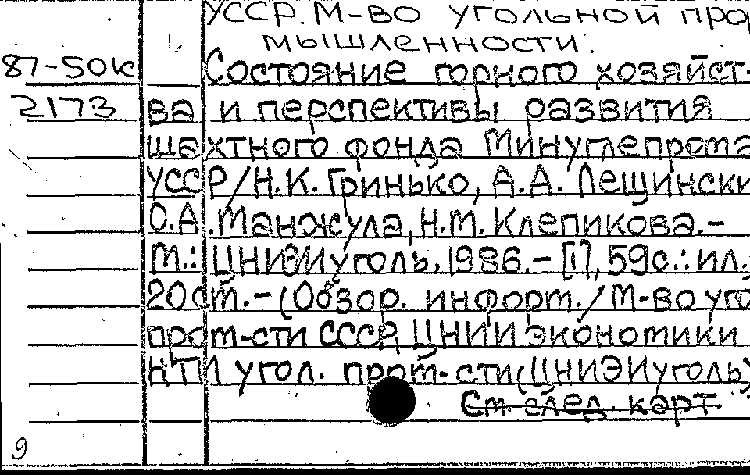 УССР. М-во угольной про
мышленности.
87-50к Состояние горного хозяйст-
2173 ва и перспективы развития
шахтного фонда Минуглепрома
УССР/Н.К. Гринько, А.Д. Лещински
О.А. Манжула, Н.М. Клепикова.-
М.: ЦНИЭИуголь, 1986.- [1], 59с.: ил.
20см.- (Обзор. информ./М-во уго
пром-сти СССР, ЦНИИ экономики
НТИ угол. пром-сти(ЦНИЭИуголь)
См. след. карт.
9